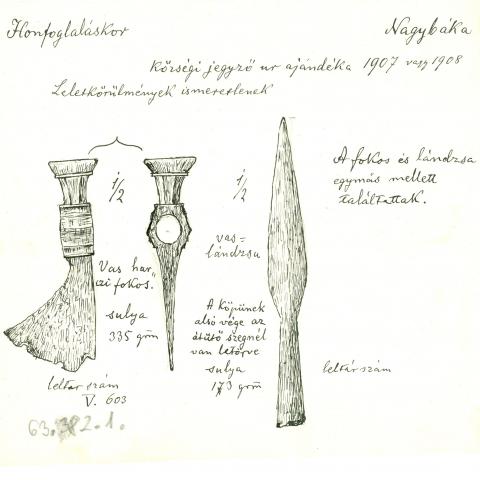 Honfoglaláskor
Nagybáka
Községi jegyző ur ajándéka 1907 vagy 1908
Leletkörülmények ismeretlenek
1/2
1/2
A fokos és lándzsa
egymás mellett
találtattak.
Vas har„
czi fokos.
sulya
335 grm
vas=
lándzsa
A köpünek
alsó vége az
átütő szegnél
van letörve
sulya
173 grm
leltár szám
V. 603
leltár szám
63.382.1.